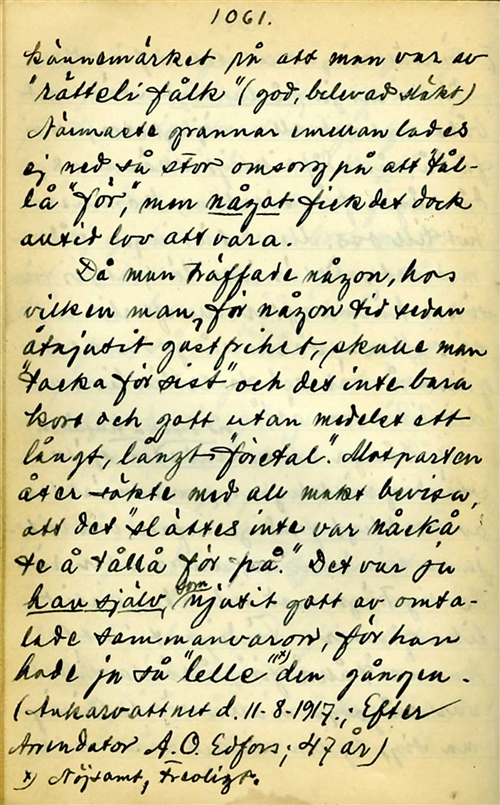 1061.
kännemärket på att man var av
"rätteli fålk" (god, belevad släkt)
Närmaste grannar emellan lades
ej ned så stor omsorg på att "tål-
lå för", men något fick det dock
alltid lov att vara.
Då man träffade någon, hos
vilken man, för någon tid sedan
åtnjutit gästfrihet, skulle man
"tacka för sist" och det inte bara
kort och gott utan medelst ett
långt, långt "företal". Motparten
åter sökte med all makt bevisa,
att det "slättes inte var nåckå
te å tållå för på." Det var ju
han själv, som njutit gott av omta-
lade sammanvaron, för han
hade ju så "lelle"x) den gången.
(Ankarvattnet d. 11-8-1917.; Efter
Arrendator A.O. Edfors; 47 år)
x) Nöjsamt, Trevligt.